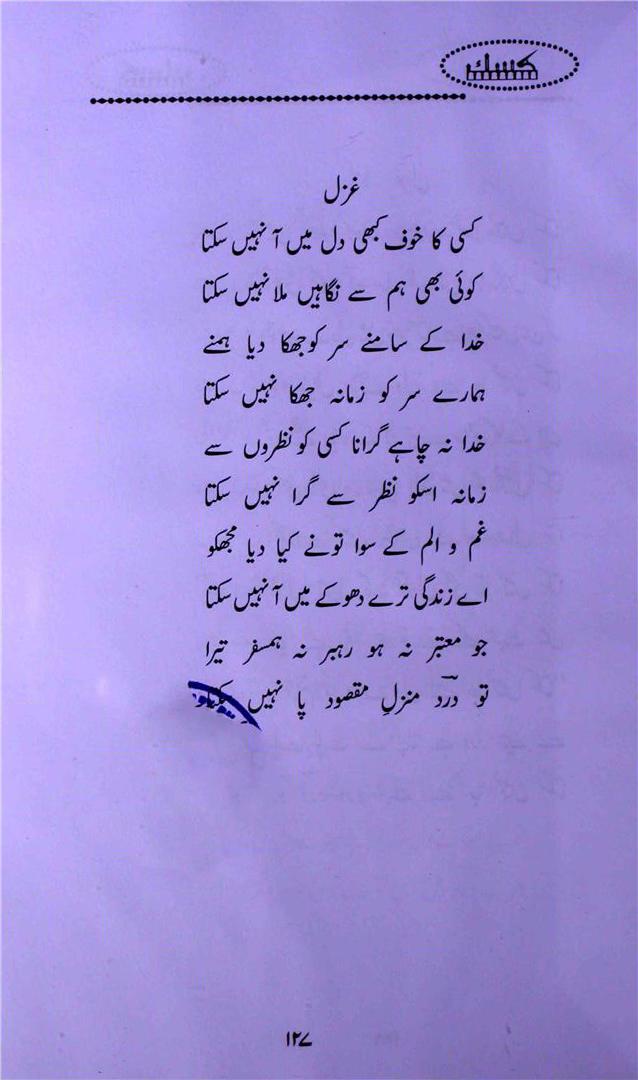 کسک
غزل
کسی کا خوف کبھی دل میں آ نہیں سکتا
کوئی بھی ہم سے نگاہیں ملا نہیں سکتا
خدا کے سامنے سر کو جھکا دیا ہمنے
ہمارے سر کو زمانہ جھکا نہیں سکتا
خدا نہ چاہے گرانا کسی کو نظروں سے
زمانہ اسکو نظر سے گرا نہیں سکتا
غم و الم کے سوا تونے کیا دیا مجھکو
اے زندگی ترے دھوکے میں آ نہیں سکتا
جو معتبر نہ ہو رہبر نہ ہمسفر تیرا
تو درد منزلِ مقصود پا نہیں
۱۲۷